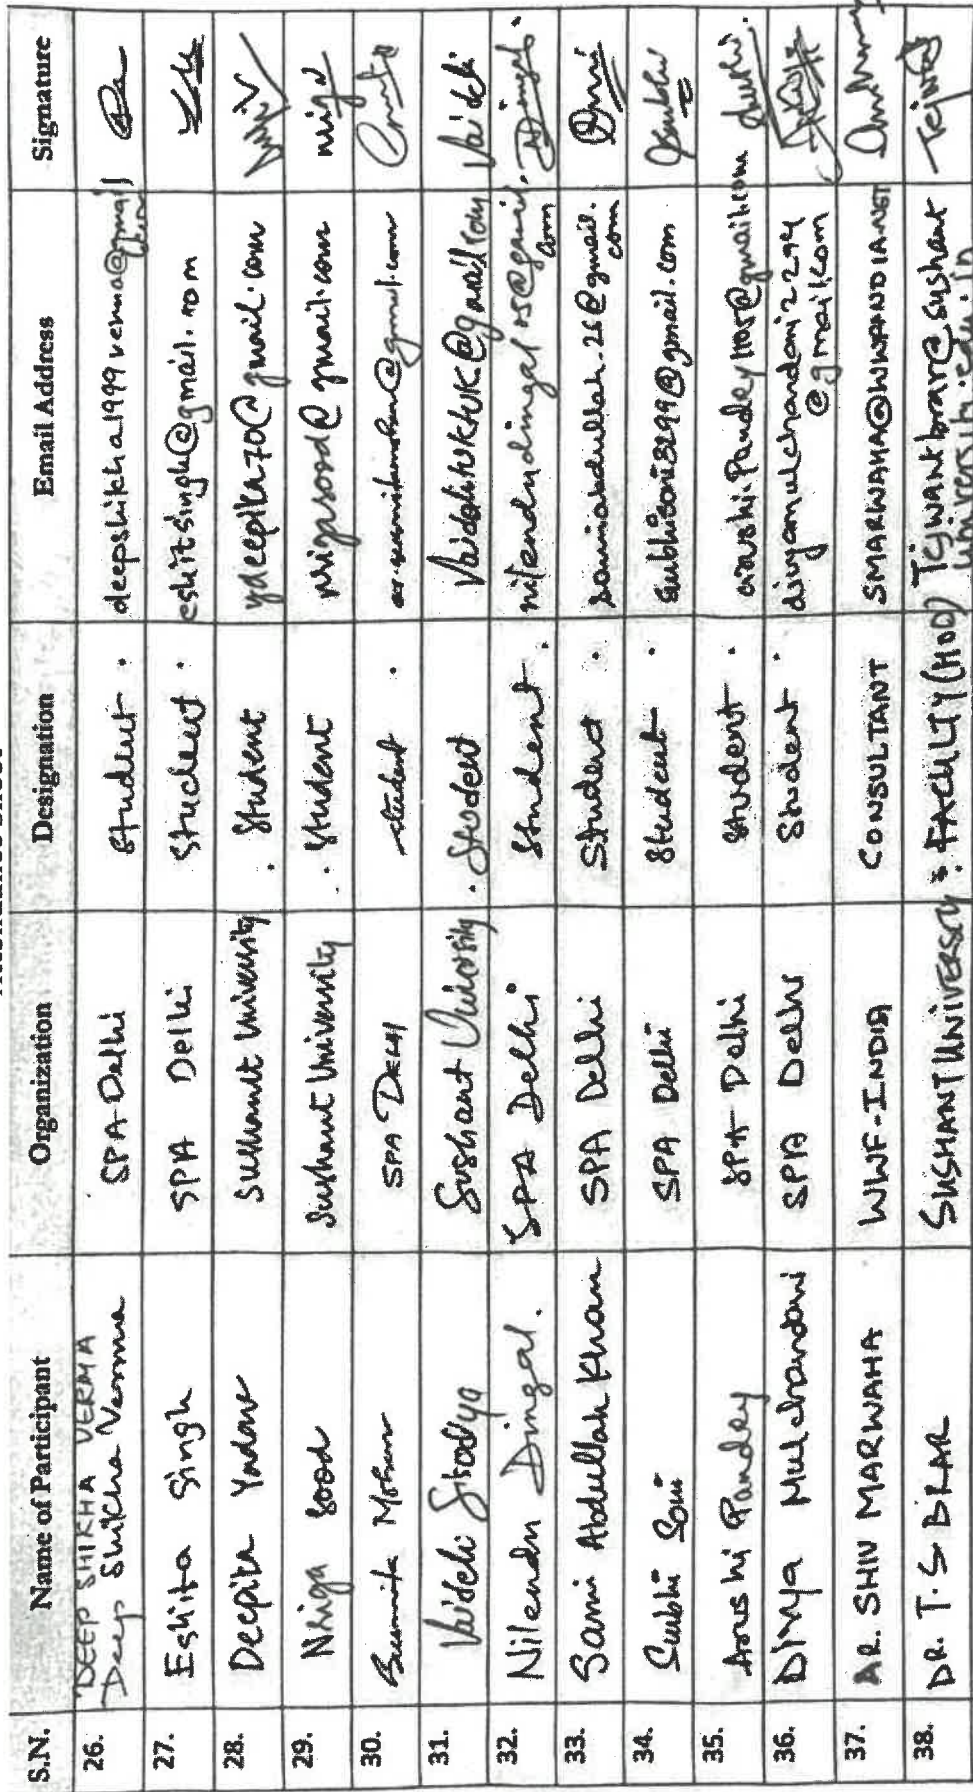 S.N. Name of Participant Organization Designation Email Address Signature
26. DEEP SHIKHA VERMA
Deep Shikha Verma SPA Delhi Student . deepshikha1999verma@gmail
27. Eshita Singh SPA Delhi Student . eshitsingh@gmail.com
28. Deepika Yadav Sushant University . Student ydeepika70@gmail.com
29. Nriga Sood Sushant University . Student nrigasood@gmail.com nriga
30. Mohan SPA DELHI student . @gmail.com
31. Vaidehi Sisodiya Sushant University . Student @gmail.com Vaidehi
32. Nilendu Dingal. SPA Delhi Student . nilendudingal05@gmail.
com
33. Sami Abdullah Khan SPA Delhi Student . samiabdullah.26@gmail.
com
34. Surbhi Soni SPA Delhi Student . surbhisoni3299@gmail.com
35. Arushi Pandey SPA Delhi Student . @gmail.com
36. Divya Mulchandani SPA Delhi Student . divyamulchandani2294
@gmail.com
37. AR. SHIV MARWAHA WWF-INDIA CONSULTANT SMARWAHA@WWFINDIA.NET
38. DR. T.S BRAR SUSHANT UNIVERSITY FACULTY (HOD) Tejwantbrar@sushant
university.edu.in